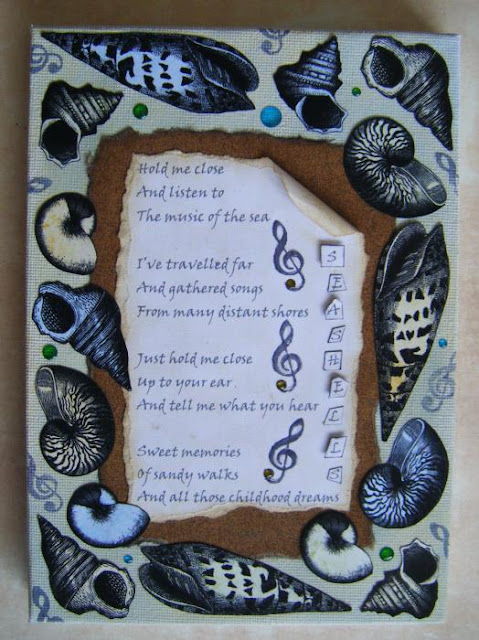 Hold me close
And listen to
The music of the sea
I've travelled far
And gathered songs
From many distant shores
Just hold me close
Up to your ear
And tell me what you hear
Sweet memories
Of sandy walks
And all those childhood dreams
S
E
A
S
H
E
L
L
S